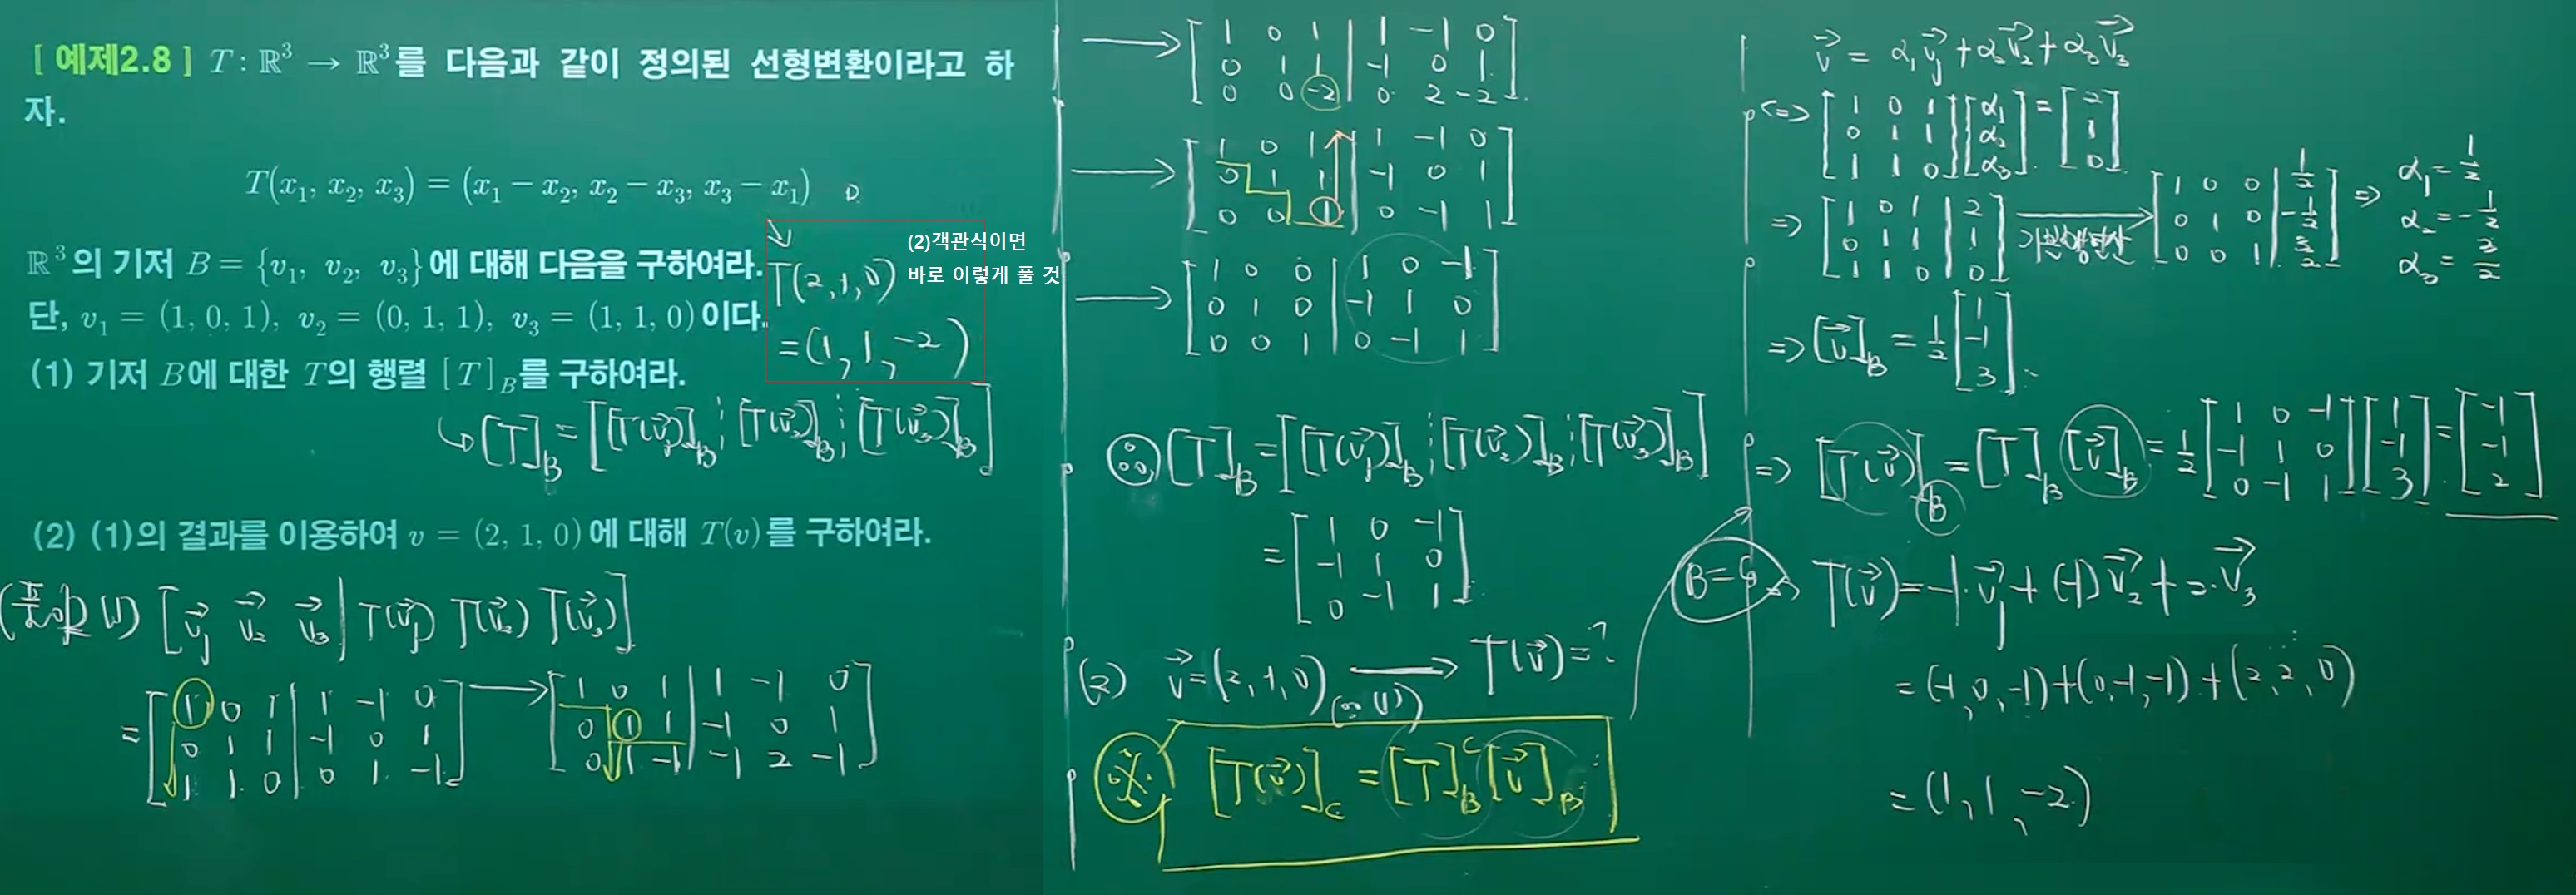 [ 예제2.8 ] T : ℝ³ → ℝ³를 다음과 같이 정의된 선형변환이라고 하
자.
T(x₁, x₂, x₃) = (x₁ − x₂, x₂ − x₃, x₃ − x₁)
ℝ³의 기저 B = {v₁, v₂, v₃}에 대해 다음을 구하여라.
단, v₁ = (1, 0, 1), v₂ = (0, 1, 1), v₃ = (1, 1, 0)이다.
(1) 기저 B에 대한 T의 행렬 [T]_B를 구하여라.
↪ [T]_B = [[T(v⃗₁)]_B ⋮ [T(v⃗₂)]_B ⋮ [T(v⃗₃)]_B]
(2)객관식이면
바로 이렇게 풀 것
T(2,1,0)
= (1, 1, -2)
(2) (1)의 결과를 이용하여 v = (2, 1, 0)에 대해 T(v)를 구하여라.
(풀이) (1) [v⃗₁ v⃗₂ v⃗₃ | T(v⃗₁) T(v⃗₂) T(v⃗₃)]
= [1 0 1 | 1 -1 0 → [1 0 1 | 1 -1 0
0 1 1 | -1 0 1 0 1 1 | -1 0 1
1 1 0 | 0 1 -1] 0 1 -1 | -1 2 -1]
→ [1 0 1 | 1 -1 0
0 1 1 | -1 0 1
0 0 -2 | 0 2 -2]
→ [1 0 1 | 1 -1 0
0 1 1 | -1 0 1
0 0 1 | 0 -1 1]
→ [1 0 0 | 1 0 -1
0 1 0 | -1 1 0
0 0 1 | 0 -1 1]
∴ [T]_B = [[T(v⃗₁)]_B ⋮ [T(v⃗₂)]_B ⋮ [T(v⃗₃)]_B]
= [1 0 -1
-1 1 0
0 -1 1]
(2) v⃗ = (2,1,0) → T(v⃗) = ?
(∵ (1))
※ [T(v⃗)]_C = [T]_B^C [v⃗]_B
B = C
v⃗ = α₁v⃗₁ + α₂v⃗₂ + α₃v⃗₃
<=> [1 0 1 [α₁ = [2
0 1 1 α₂ 1
1 1 0] α₃] 0]
=> [1 0 1 | 2 → [1 0 0 | 1/2 => α₁ = 1/2
0 1 1 | 1 기본행연산 0 1 0 | -1/2 α₂ = -1/2
1 1 0 | 0] 0 0 1 | 3/2] α₃ = 3/2
=> [v⃗]_B = 1/2 [1
-1
3]
=> [T(v⃗)]_B = [T]_B [v⃗]_B = 1/2 [1 0 -1 [1 = [-1
-1 1 0 -1 -1
0 -1 1] 3] 2]
=> T(v⃗) = -1·v⃗₁ + (-1)v⃗₂ + 2·v⃗₃
= (-1, 0, -1) + (0, -1, -1) + (2, 2, 0)
= (1, 1, -2)